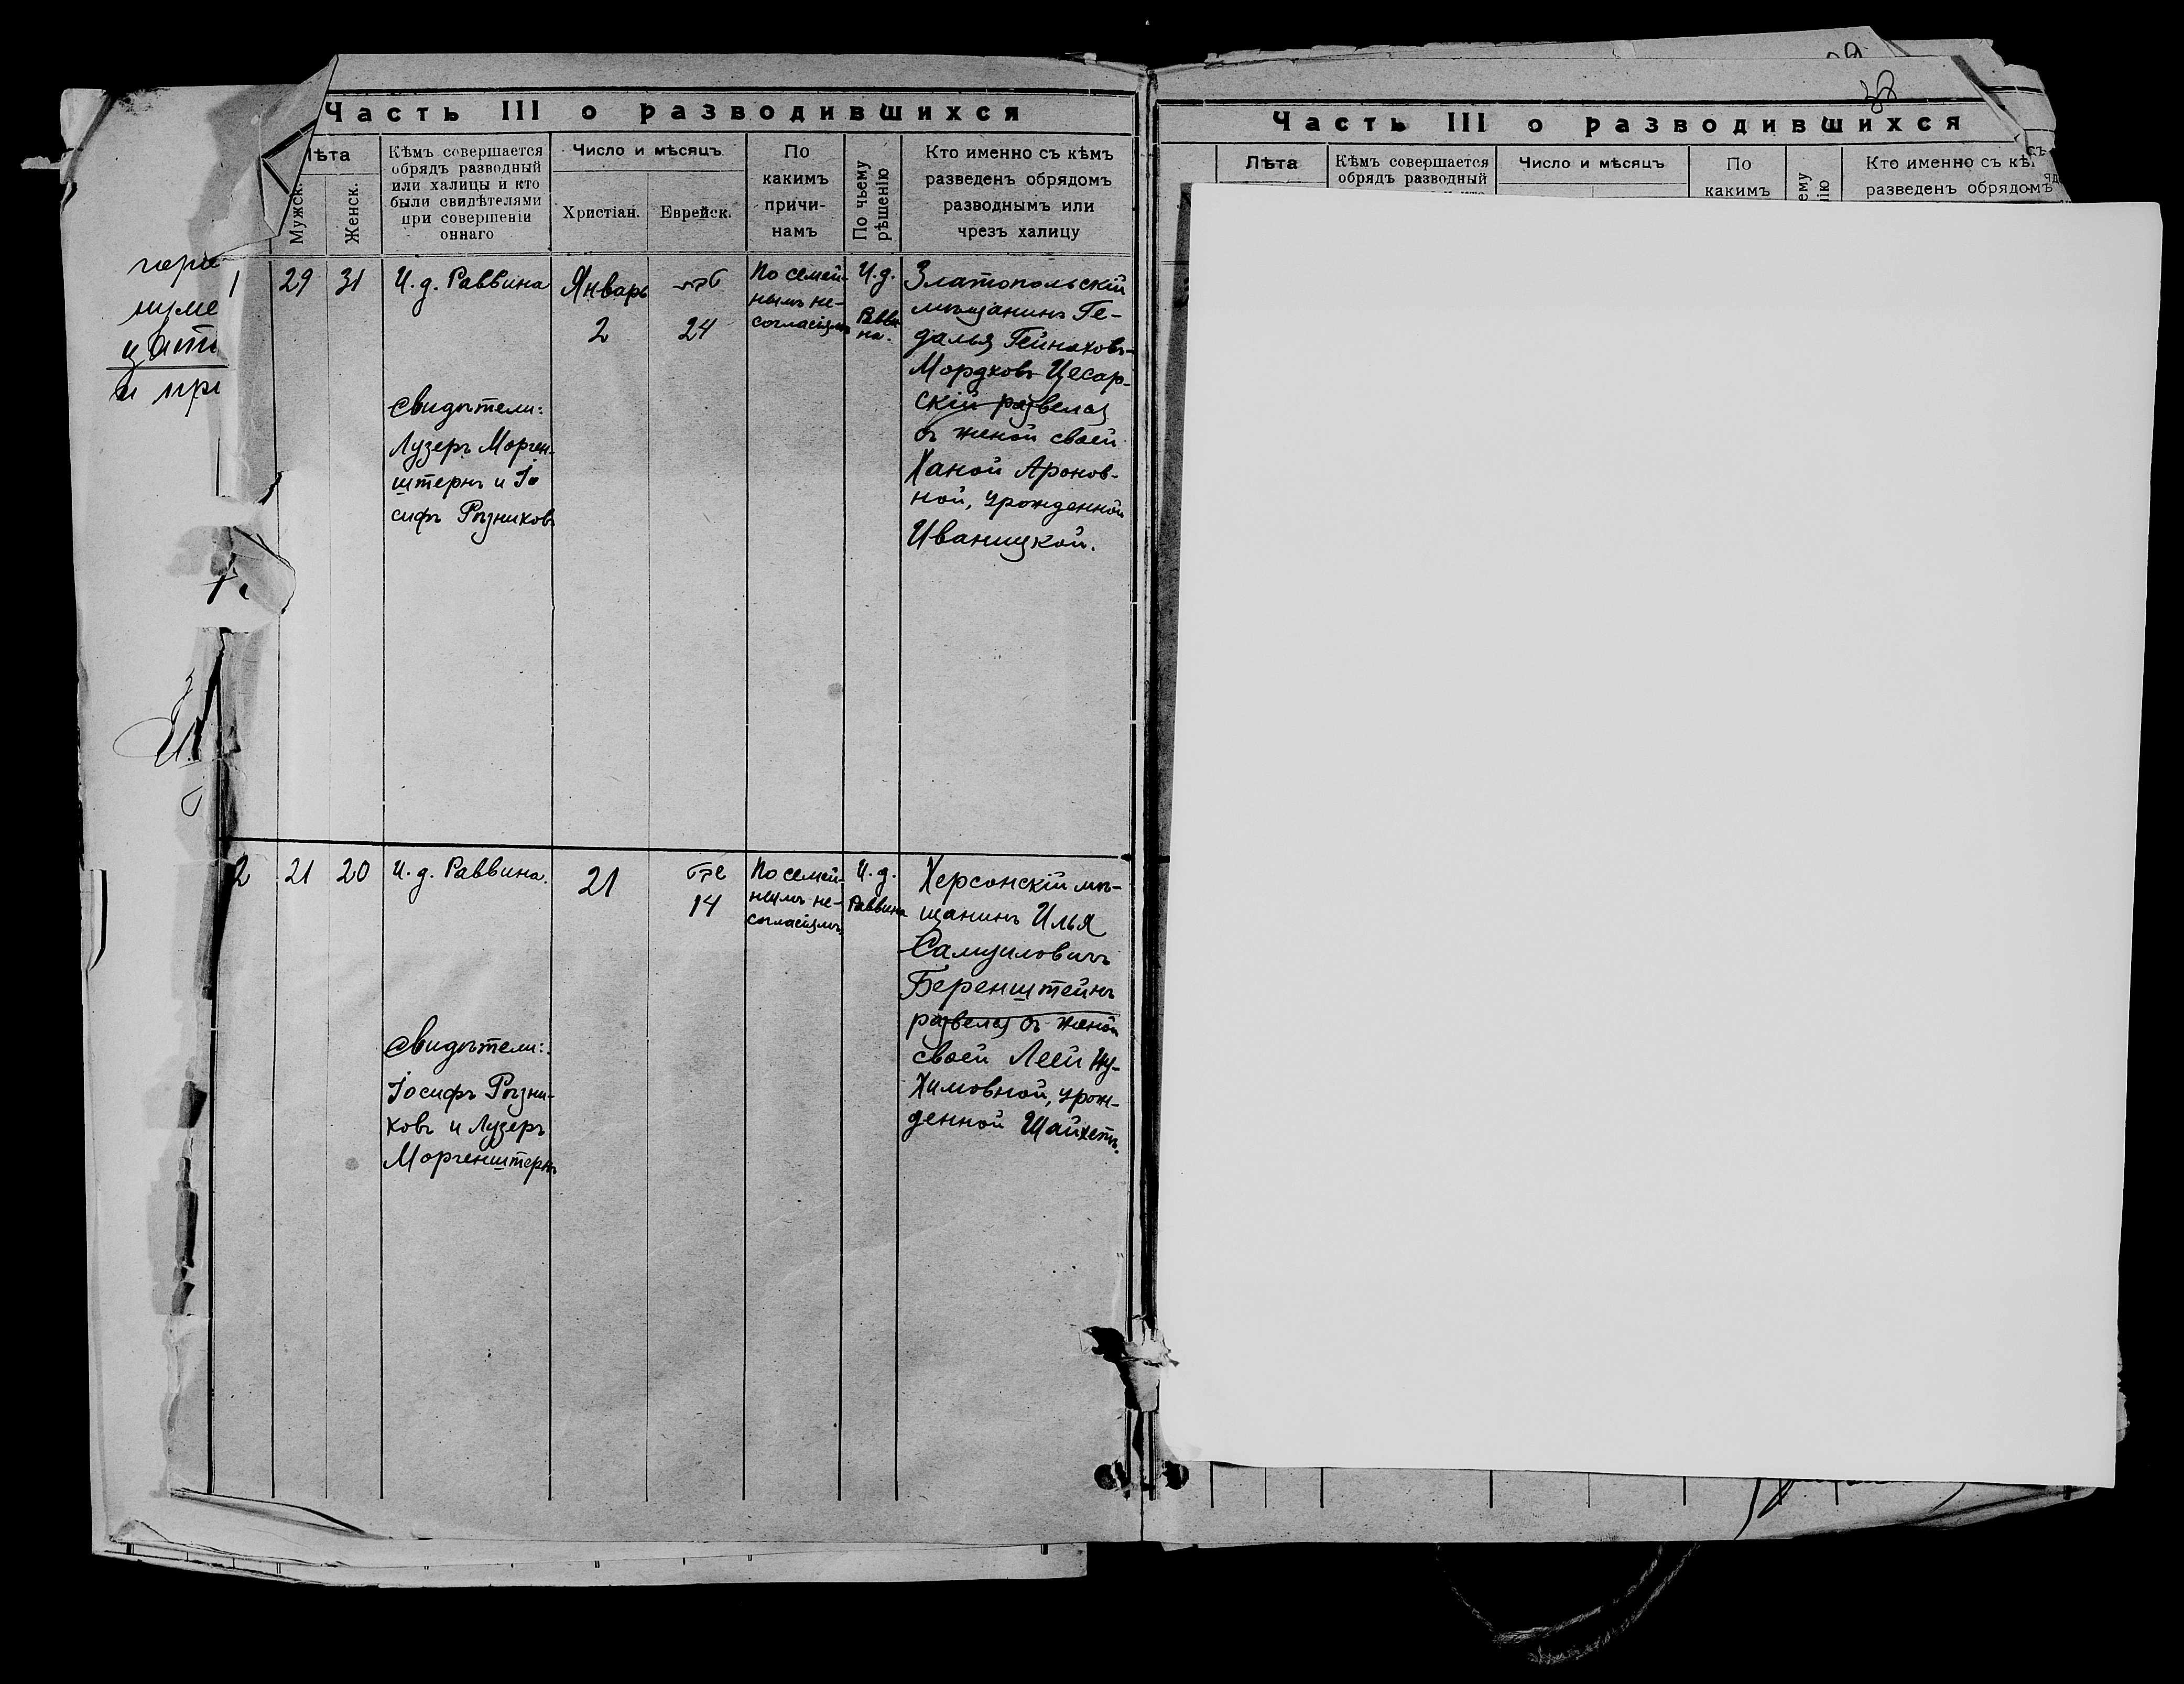 Часть III о разводившихся
Лѣта
Мужск.
Женск.
Кѣмъ совершается
обрядъ разводный
или халицы и кто
были свидѣтелями
при совершеніи
оннаго
Число и мѣсяцъ
Христіан.
Еврейск.
По
какимъ
причи-
намъ
По чьему
рѣшенію
Кто именно съ кѣмъ
разведенъ обрядомъ
разводнымъ или
чрезъ халицу
1
29
31
И. д. Раввина
Свидѣтели:
Лузеръ Морген-
штернъ и Іо
сифъ Рѣзниковъ
Январь
2
24
По семей-
нымъ не-
согласіямъ
И. д.
Равви
на.
Златопольскій
мѣщанинъ Ге-
далья Гейнаховъ-
Мордковъ Цесар-
скій развелся
съ женой своей
Ханой Аронов-
ной, урожденной
Иваницкой.
2
21
20
И. д. Раввина.
Свидѣтели:
Іосифъ Рѣзни-
ковъ и Лузеръ
Моргенштернъ
21
14
По семей-
нымъ не-
согласіямъ
И. д.
Раввина
Херсонскій мѣ-
щанинъ Илья
Самуиловичъ
Беренштейнъ
развелся съ женой
своей Леей Ну-
химовной, урож-
денной Шайхетъ.
38
Часть III о разводившихся
Лѣта
Кѣмъ совершается
обрядъ разводный
Число и мѣсяцъ
По
какимъ
Кто именно съ кѣ
разведенъ обрядомъ